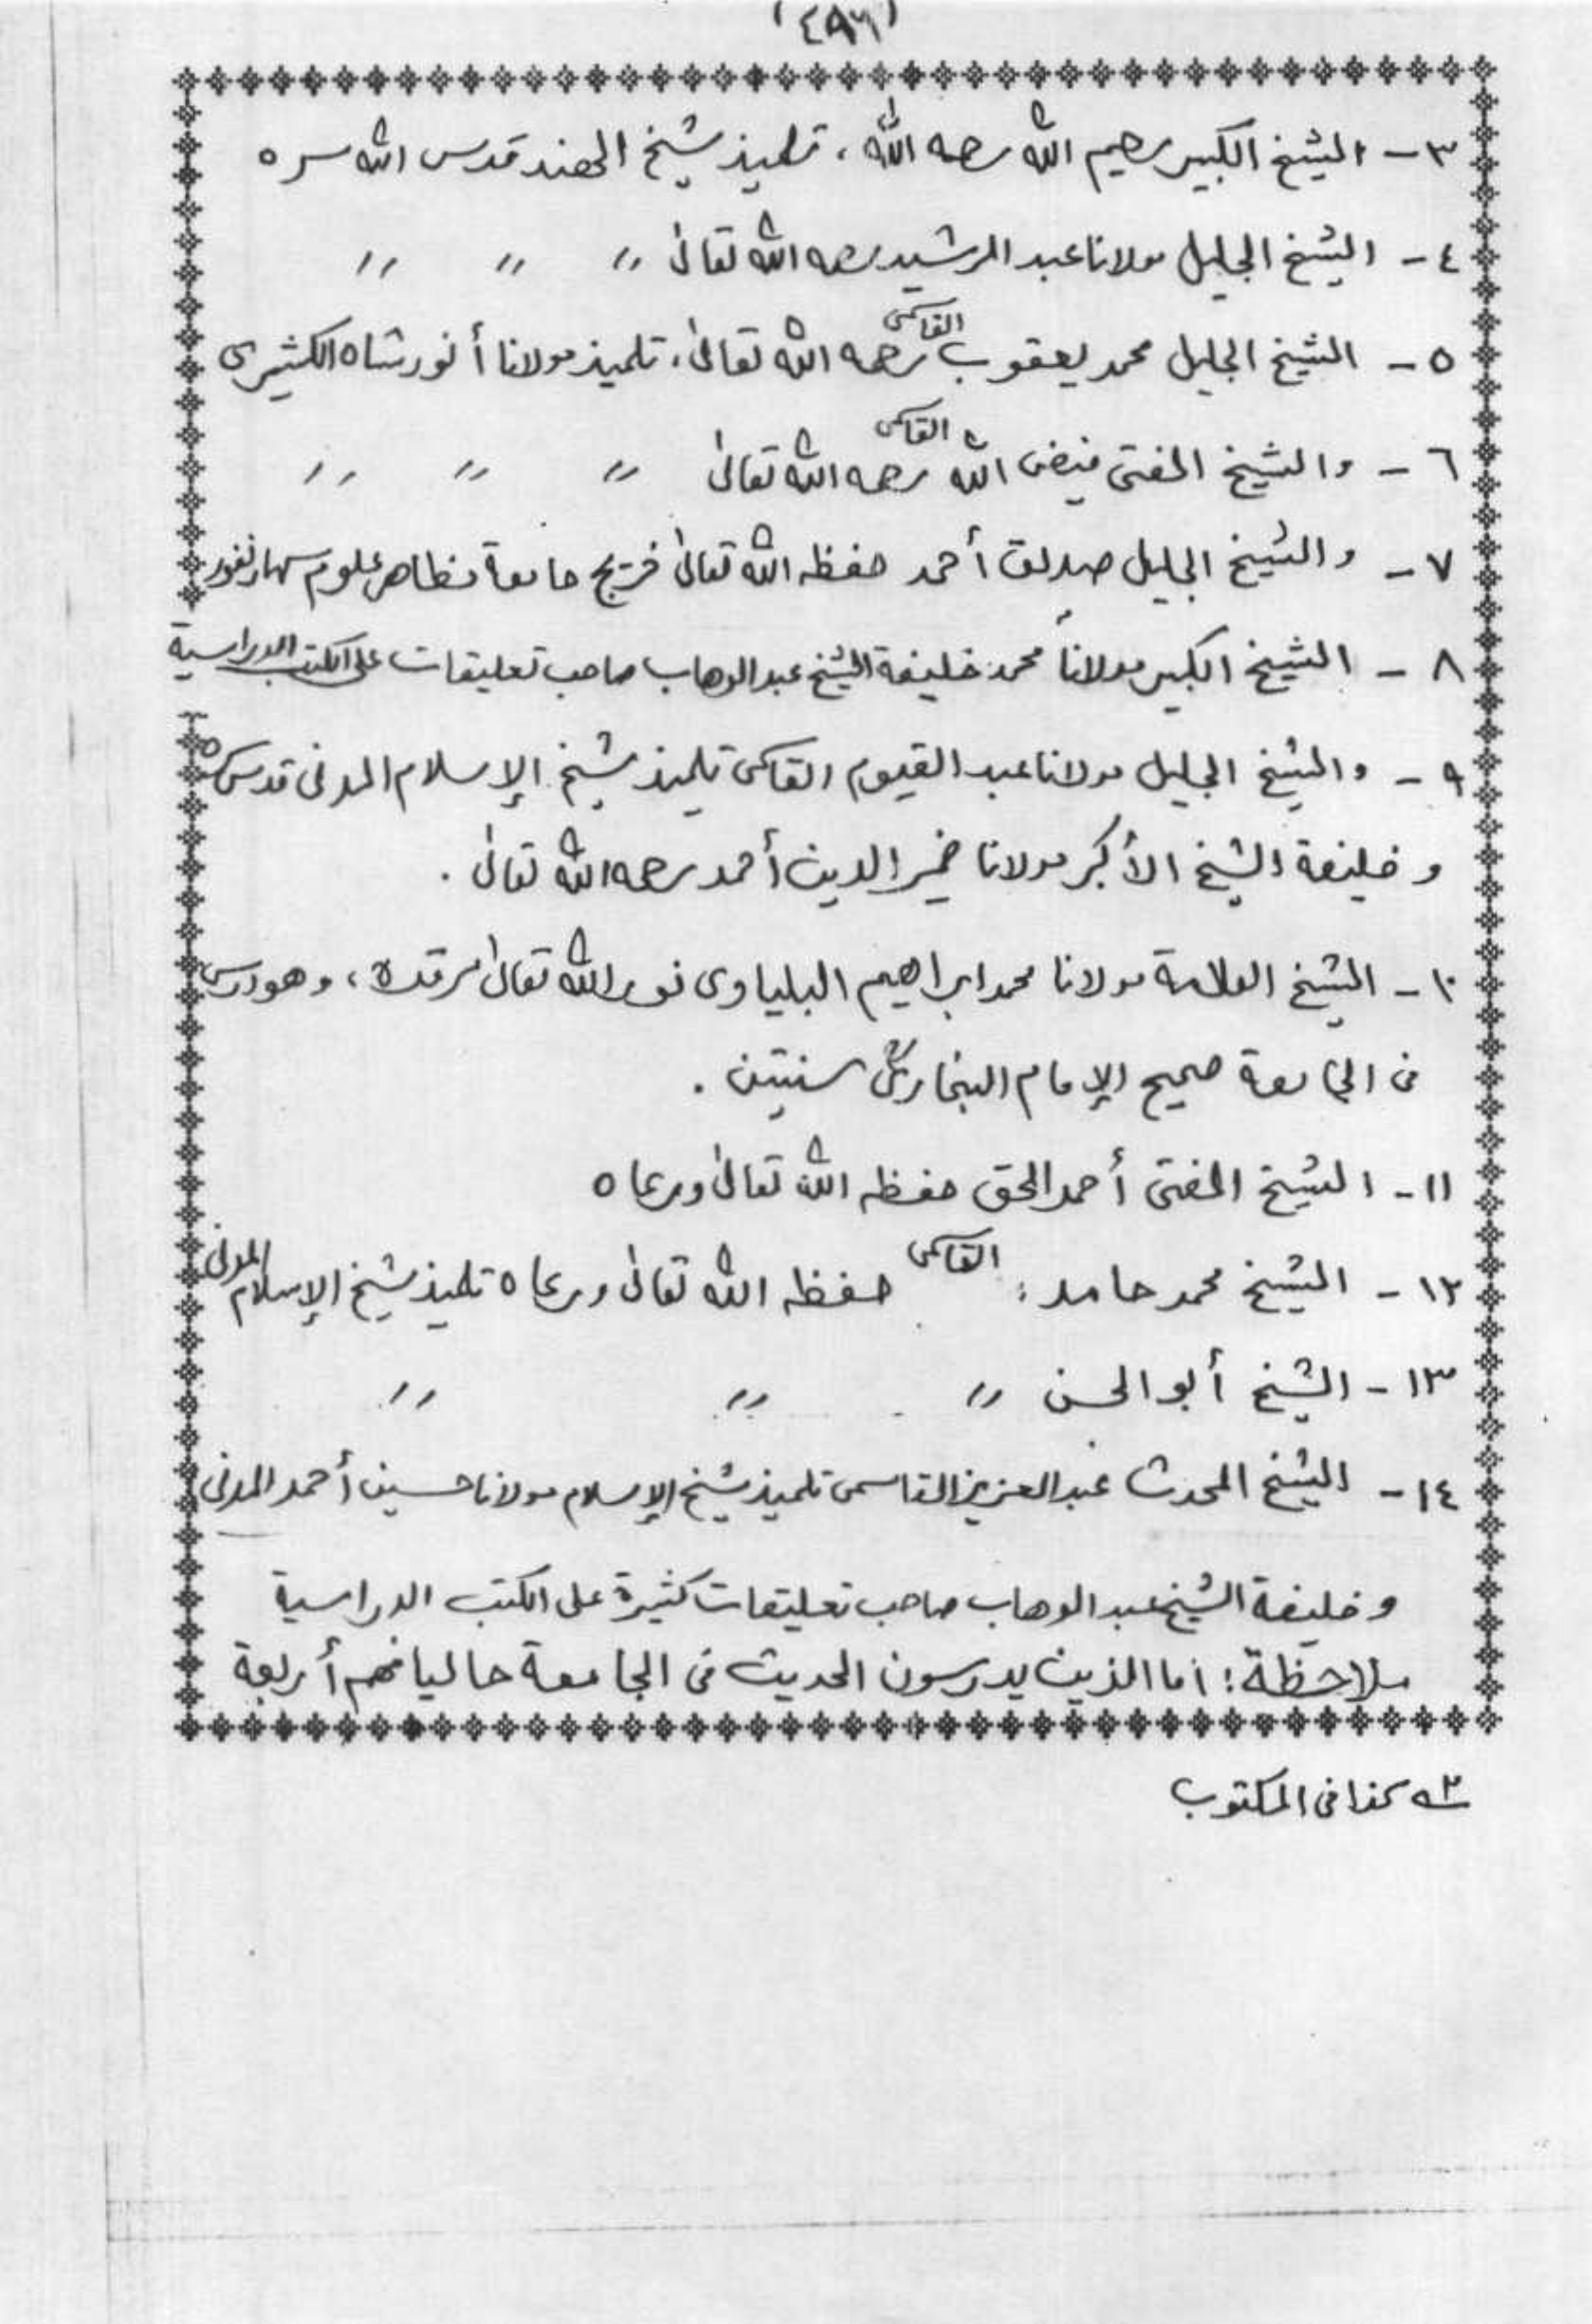 (٤٩٦)
٣- الشيخ الكبير رحيم الله رحمه الله، تلميذ شيخ الهند قدس الله سره
٤- الشيخ الجليل مولانا عبد الرشيد رحمه الله تعالى " " "
٥- الشيخ الجليل محمد يعقوب القاسمى رحمه الله تعالى، تلميذ مولانا أنور شاه الكشميرى
٦- والشيخ المفتى فيض الله القاسمى رحمه الله تعالى " " "
٧- والشيخ الجليل صديق أحمد حفظه الله تعالى خريج جامعة مظاهر علوم سهارنفور
٨- الشيخ الكبير مولانا محمد خليفة الشيخ عبد الوهاب صاحب تعليقات على الكتب الدراسية
٩- والشيخ الجليل مولانا عبد القيوم القاسمى تلميذ شيخ الإسلام المدنى قدس سره
وخليفة الشيخ الأكبر مولانا ضمير الدين أحمد رحمه الله تعالى.
١٠- الشيخ العلامة مولانا محمد ابراهيم البلياوى نور الله تعالى مرقده، وهو درس
فى الجامعة صحيح الإمام البخارى سنتين.
١١- الشيخ المفتى أحمد الحق حفظه الله تعالى ورعاه
١٢- الشيخ محمد حامد: القاسمى حفظه الله تعالى ورعاه تلميذ شيخ الإسلام المدنى
١٣- الشيخ أبو الحسن " " "
١٤- الشيخ المحدث عبد العزيز القاسمى تلميذ شيخ الإسلام مولانا حسين أحمد المدنى
وخليفة الشيخ عبد الوهاب صاحب تعليقات كثيرة على الكتب الدراسية
ملاحظة: اما الذين يدرسون الحديث فى الجامعة حاليا فهم أربعة
كذا فى المكتوب